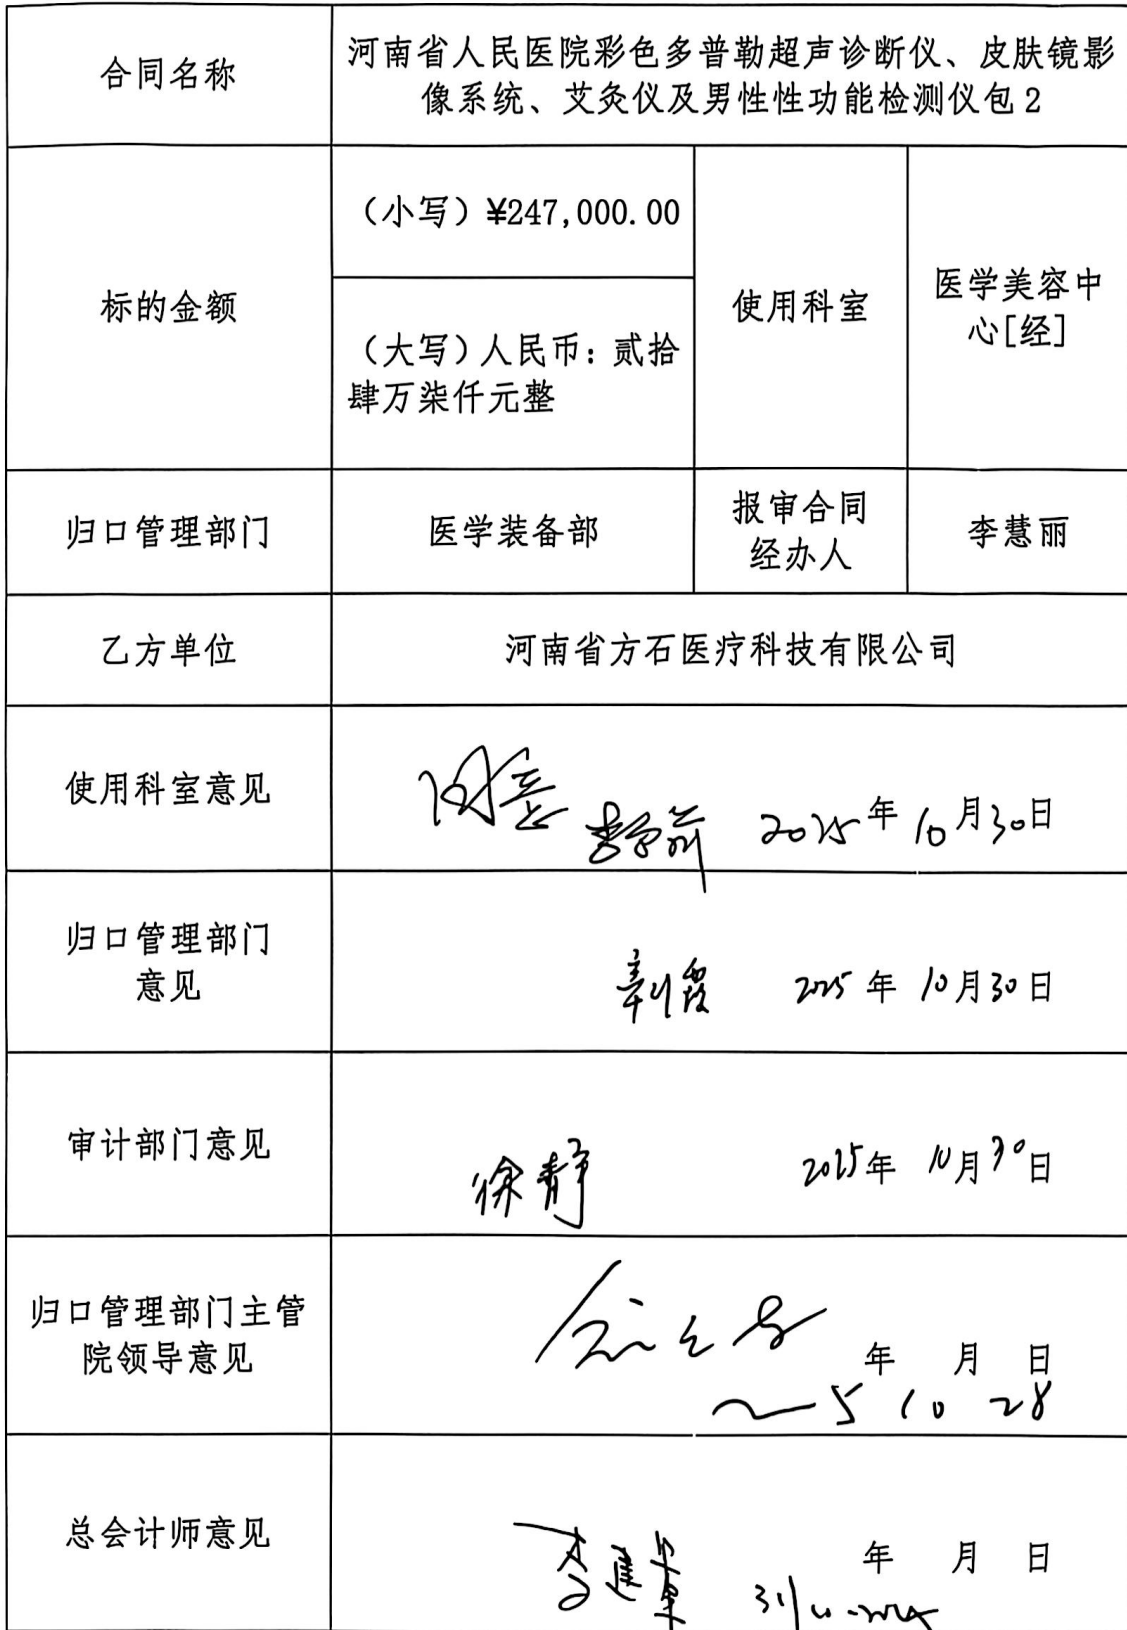 合同名称
河南省人民医院彩色多普勒超声诊断仪、皮肤镜影
像系统、艾灸仪及男性性功能检测仪包2
标的金额
（小写）¥247,000.00
（大写）人民币：贰拾
肆万柒仟元整
使用科室
医学美容中
心[经]
归口管理部门
医学装备部
报审合同
经办人
李慧丽
乙方单位
河南省方石医疗科技有限公司
使用科室意见
2025年10月30日
归口管理部门
意见
2025年10月30日
审计部门意见
徐静
2025年10月30日
归口管理部门主管
院领导意见
年 月 日
5 10 28
总会计师意见
年 月 日